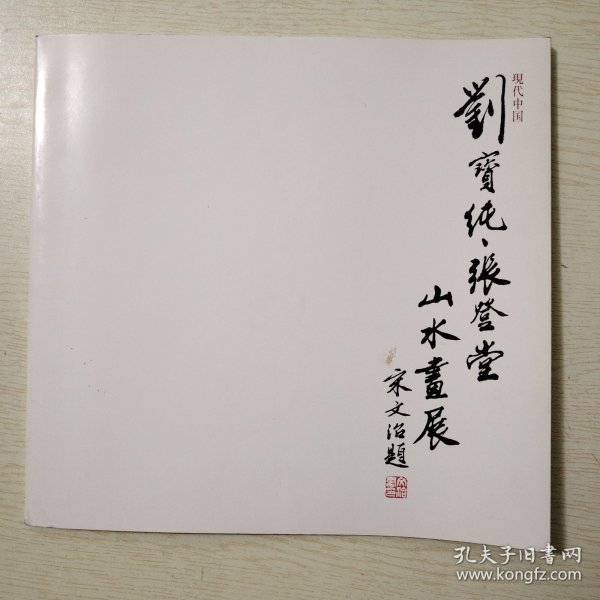 現代中国
劉寶純、張登堂
山水畫展
宋文治題
孔夫子旧书网
www.kongfz.com